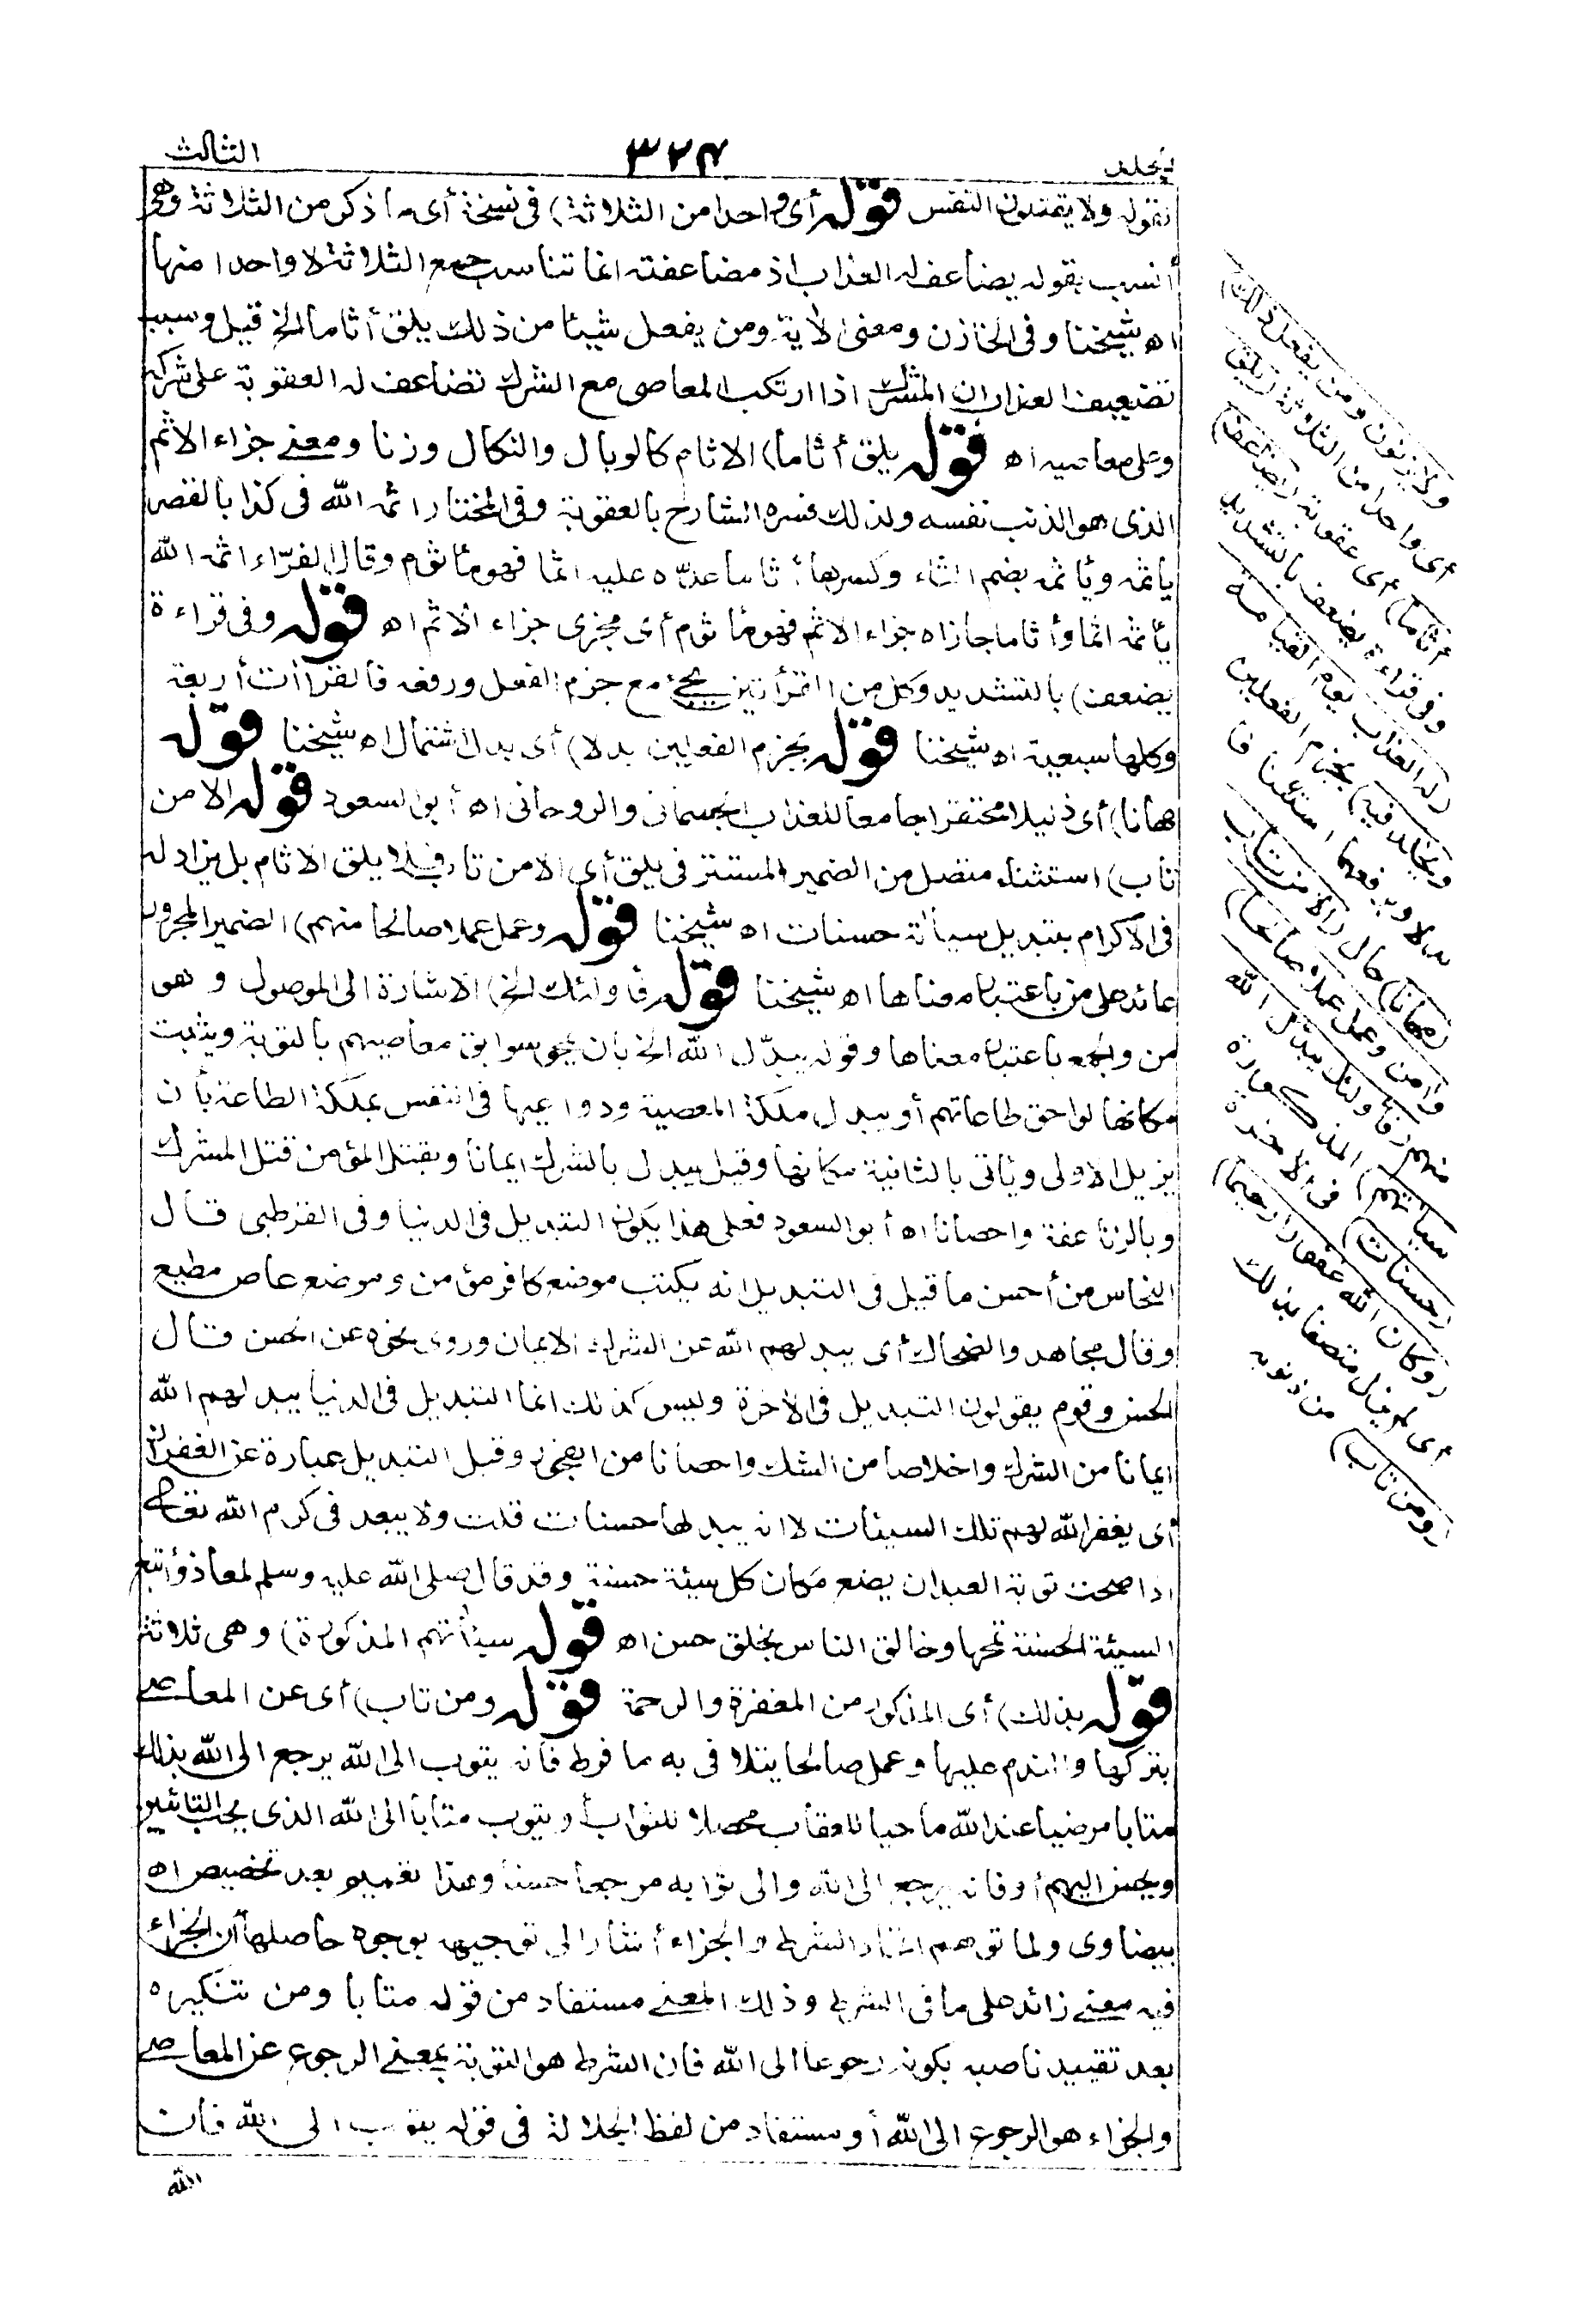 الجلد
٣٢٤
الثالث
بقوله ولا يقتلون النفس قوله أي واحدا من الثلاثة) في نسخة أي ما ذكر من الثلاثة وهو
أنسب بقوله يضاعف له العذاب اذ مضاعفته انما تناسب جمع الثلاثة لا واحدا منها
اه شيخنا وفي الخازن ومعنى الآية ومن يفعل شيئا من ذلك يلق أثاما الخ قيل وسبب
تضعيف العذاب ان المشرك اذا ارتكب المعاصي مع الشرك تضاعف له العقوبة على شركه
وعلى معاصيه اه قوله يلق أثاما) الاثام كالوبال والنكال وزنا ومعنى جزاء الاثم
الذي هو الذنب نفسه ولذلك فسره الشارح بالعقوبة وفي المختار اثمه الله في كذا بالقصر
يأثمه ويأثمه بضم الثاء وكسرها أثاما عدّه عليه اثما فهو مأثوم وقال الفرّاء اثمه الله
يأثمه اثما وأثاما جازاه جزاء الاثم فهو مأثوم أي مجزي جزاء الاثم اه قوله وفي قراءة
يضعف) بالتشديد وكل من القرأتين يجئ مع جزم الفعل ورفعه فالقراآت أربعة
وكلها سبعية اه شيخنا قوله بجزم الفعلين بدلا) أي بدل اشتمال اه شيخنا قوله
مهانا) أي ذليلا محتقرا جامعا للعذاب الجسماني والروحاني اه أبو السعود قوله الا من
تاب) استثناء متصل من الضمير المستتر في يلق أي الا من تاب فلا يلق الاثام بل يزاد له
في الاكرام بتبديل سيآته حسنات اه شيخنا قوله وعمل عملا صالحا منهم) الضمير المجرور
عائد على من باعتبار معناها اه شيخنا قوله فاولئك الخ) الاشارة الى الموصول وهو
من والجمع باعتبار معناها وقوله يبدّل الله الخ بأن يمحو سوابق معاصيهم بالتوبة ويثبت
مكانها لواحق طاعاتهم أو يبدل ملكة المعصية ودواعيها في النفس بملكة الطاعة بأن
يزيل الاولى ويأتي بالثانية مكانها وقيل يبدل بالشرك ايمانا وبقتل المؤمن قتل المشرك
وبالزنا عفة واحصانا اه أبو السعود فعلى هذا يكون التبديل في الدنيا وفي القرطبي قال
النحاس من أحسن ما قيل في التبديل انه يكتب موضع كافر مؤمن وموضع عاص مطيع
وقال مجاهد والضحاك أي يبدلهم الله عن الشرك الايمان وروى نحوه عن الحسن قال
الحسن وقوم يقولون التبديل في الآخرة وليس كذلك انما التبديل في الدنيا يبدلهم الله
ايمانا من الشرك واخلاصا من الشك واحصانا من الفجور وقيل التبديل عبارة عن الغفران
أي يغفر الله لهم تلك السيئات لا انه يبدلها حسنات قلت ولا يبعد في كرم الله تعالى
اذا صحت توبة العبد ان يضع مكان كل سيئة حسنة وقد قال صلى الله عليه وسلم لمعاذ وأتبع
السيئة الحسنة تمحها وخالق الناس بخلق حسن اه قوله سيآتهم المذكورة) وهي ثلاثة
قوله بذلك) أي المذكور من المغفرة والرحمة قوله ومن تاب) أي عن المعاصي
بتركها والندم عليها وعمل صالحا يتلافى به ما فرط فانه يتوب الى الله يرجع الى الله بذلك
متابا مرضيا عند الله ماحيا للعقاب محصلا للثواب أو يتوب متابا الى الله الذي يحب التائبين
ويحسن اليهم أو فانه يرجع الى الله والى ثوابه مرجعا حسنا وهذا تعميم بعد تخصيص اه
بيضاوي ولما توهم اتحاد الشرط والجزاء أشار الى توجيهه بوجوه حاصلها أن الجزاء
فيه معنى زائد على ما في الشرط وذلك المعنى مستفاد من قوله متابا ومن تنكيره
بعد تقييد ناصبه بكونه رجوعا الى الله فان الشرط هو التوبة بمعنى الرجوع عن المعاصي
والجزاء هو الرجوع الى الله أو مستفاد من لفظ الجلالة في قوله يتوب الى الله فان
الله
ولا يزنون ومن يفعل ذلك)
أي واحدا من الثلاثة (يلق
أثاما) أي عقوبة (يضاعف)
وفي قراءة يضعف بالتشديد
(له العذاب يوم القيامة
ويخلد فيه) بجزم الفعلين
بدلا وبرفعهما استئنافا
(مهانا) حال (الا من تاب
وآمن وعمل عملا صالحا)
منهم (فأولئك يبدل الله
سيآتهم) المذكورة
(حسنات) في الآخرة
(وكان الله غفورا رحيما)
أي لم يزل متصفا بذلك
(ومن تاب) من ذنوبه